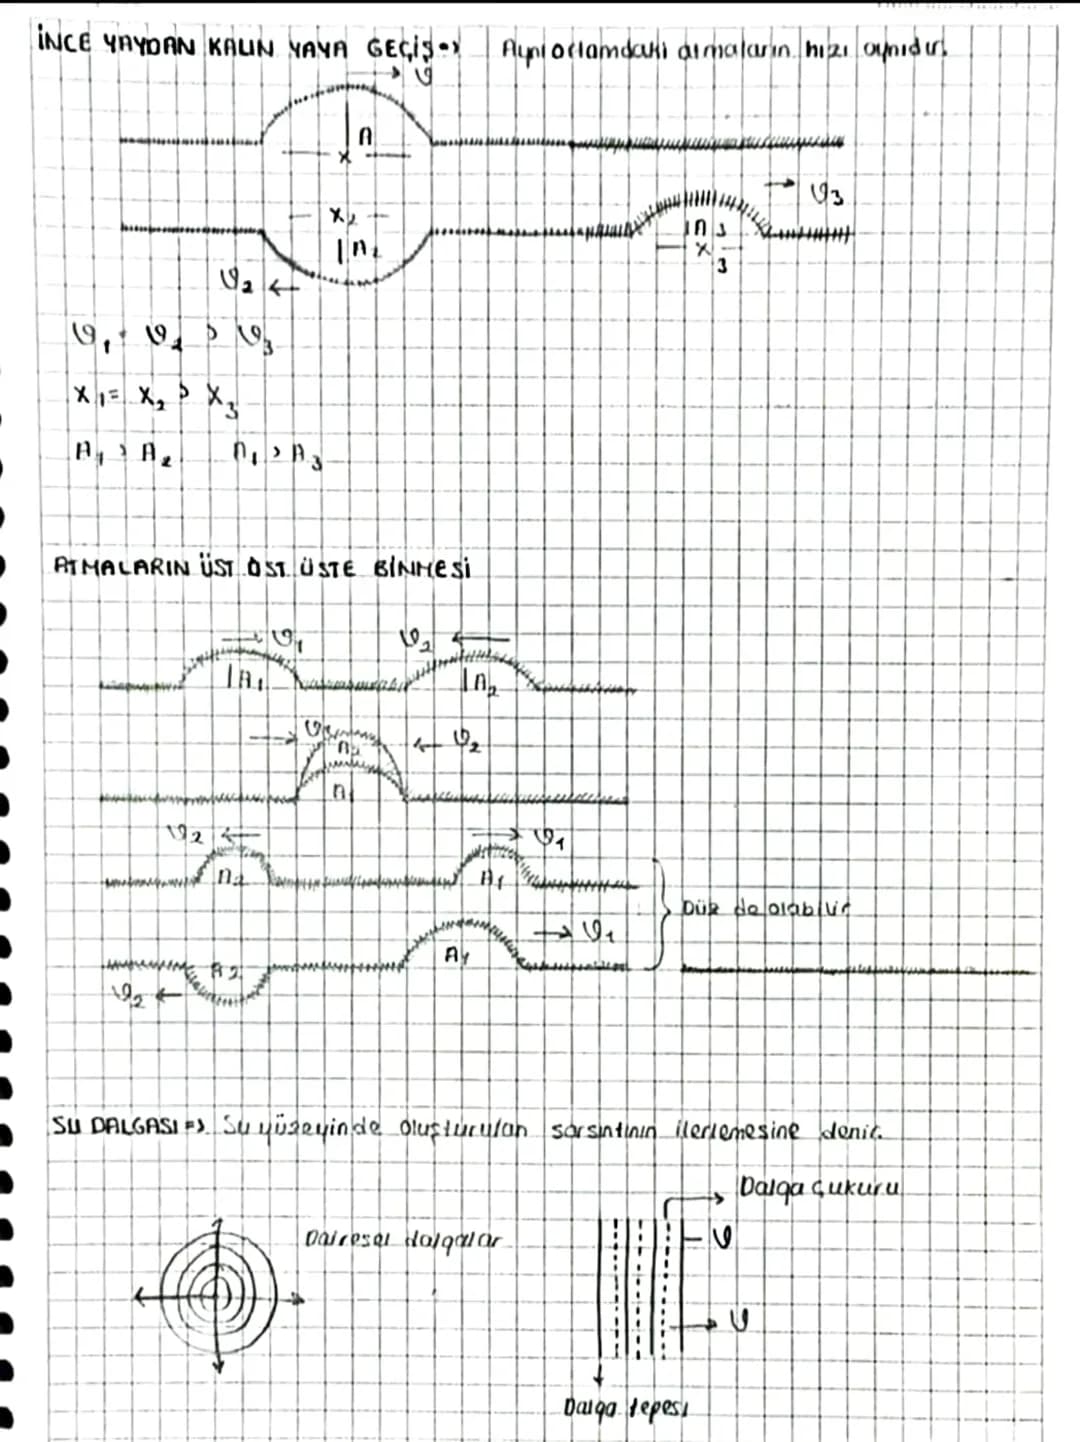 İNCE YAYDAN KALIN YAYA GEÇİŞ => Aynı ortamdaki atmaların hızı aynıdır.
υ
A
x
x₂
A₂
υ₂
υ₃
A₃
x₃
υ₁ = υ₂ > υ₃
x₁ = x₂ > x₃
A₁ > A₂ A₁ > A₃
ATMALARIN ÜST ÜST ÜSTE BİNMESİ
υ₁ υ₂
A₁ A₂
υ₁ υ₂
A₂
A₁
υ₂ υ₁
A₂ A₁
Düz de olabilir
υ₁
A₂ A₁
υ₂
SU DALGASI => Su yüzeyinde oluşturulan sarsıntının ilerlemesine denir.
Dalga çukuru
Dairesel dalgalar
υ
υ
Dalga tepesi